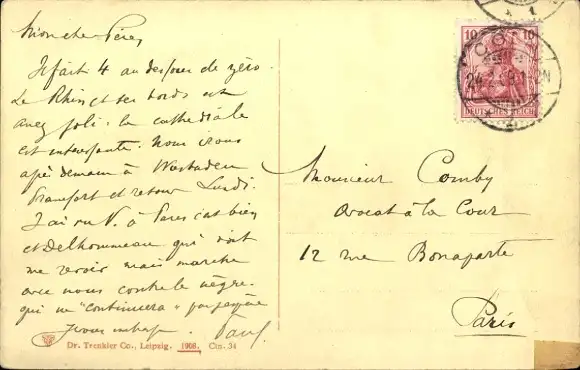 Mon cher Père,
Il fait 4 au dessous de zéro.
Le Rhin et ses bords est
assez joli: la cathédrale
est intéressante. Nous irons
après demain à Wiesbaden
Francfort et retour Lundi.
J'ai vu V. à Paris c'est bien
et Delhommeau qui doit
me revoir mais marche
avec nous contre le nègre.
qui ne "continuera"
Je vous embrasse. Paul
Dr. Trenkler Co., Leipzig. 1908. Cin. 34
10 10
DEUTSCHES REICH
Monsieur Comby
Avocat à la Cour
12 rue Bonaparte
Paris